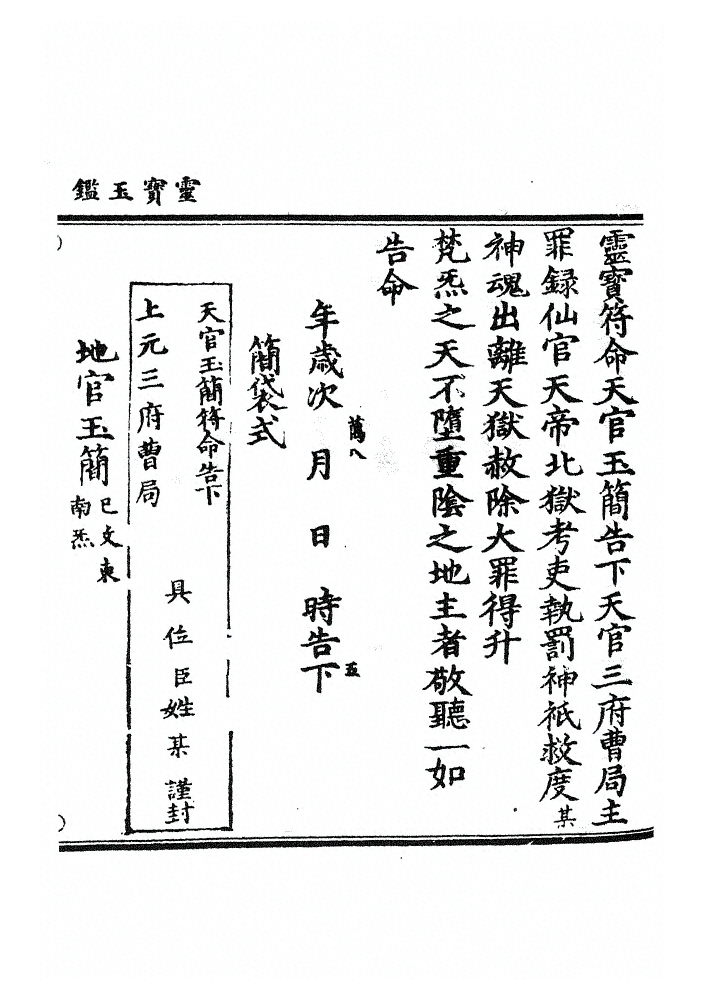 靈寶玉鑑
靈寶符命天官玉簡告下天官三府曹局主
罪録仙官天帝北獄考吏執罰神祇救度某
神魂出離天獄赦除大罪得升
梵炁之天不墮重陰之地主者敬聽一如
告命
萬八
五
年歲次 月 日 時告下
簡袋式
天官玉簡符命告下
上元三府曹局
具位臣姓某 謹封
地官玉簡
巳文東
南炁